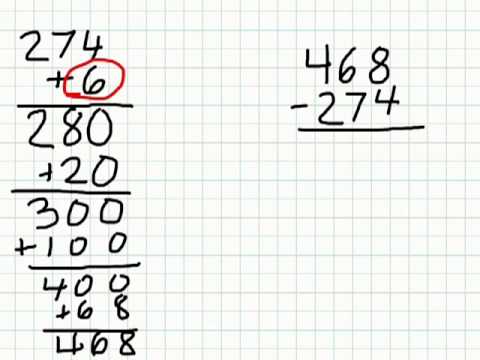 274
+6
280
+20
300
+100
400
+68
468
468
-274